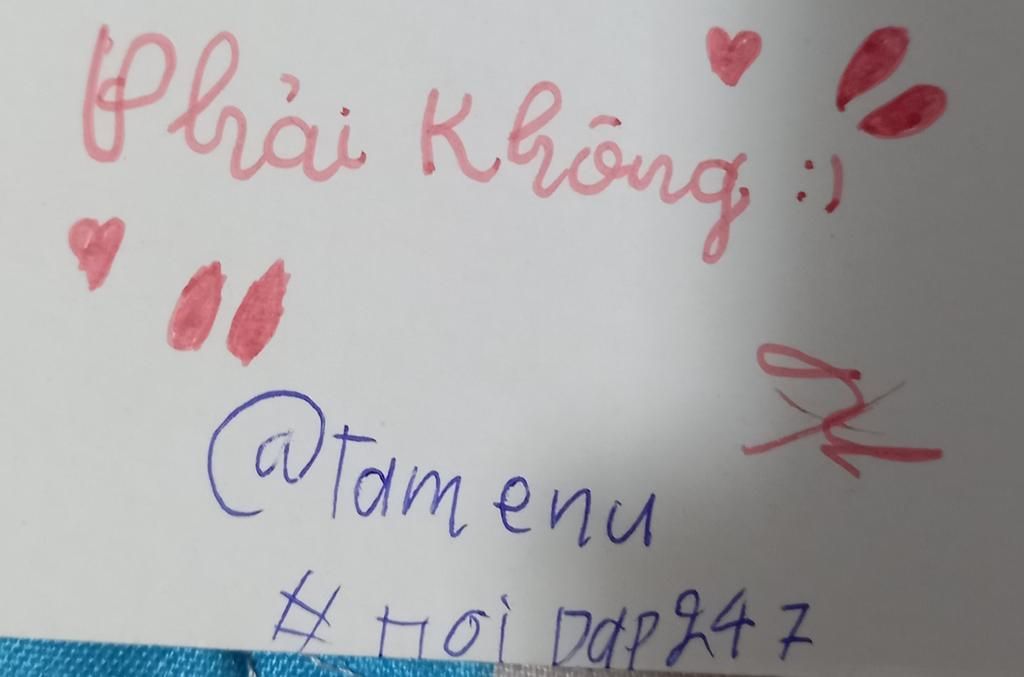 Phải Không :)
@Tamenu
# HOi Dap247